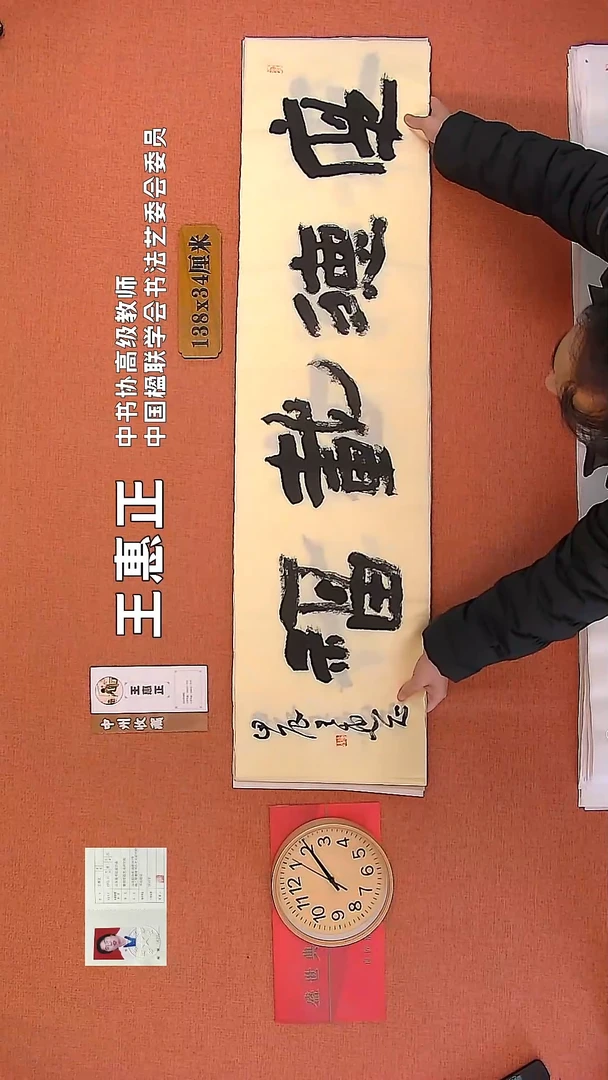 中书协高级教师
中国楹联学会书法艺委会委员
王惠正
138x34厘米
厚德載福
甲辰王惠正
王惠正
中州收藏
盛世典
12
1
2
3
4
5
6
7
8
9
10
11